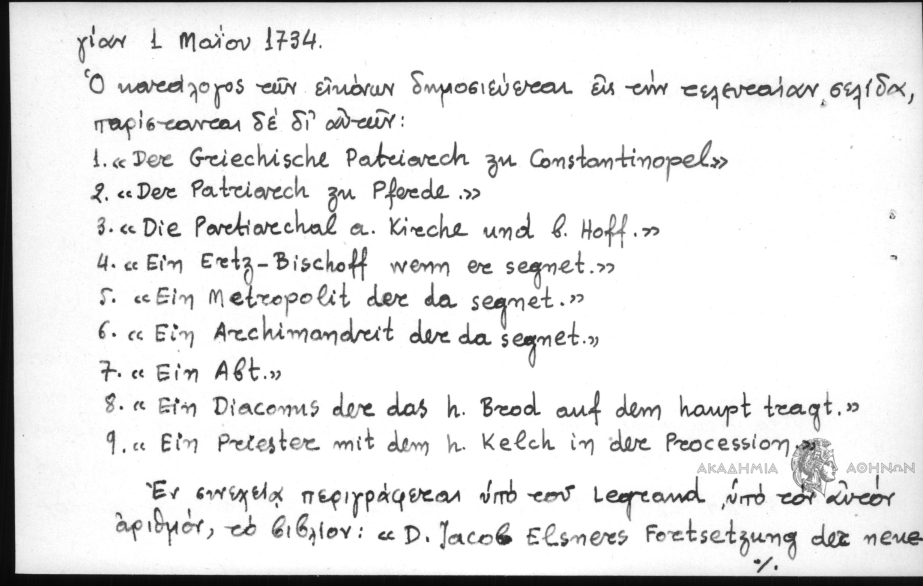 γίαν 1 Μαΐου 1734.
Ὁ κατάλογος τῶν εἰκόνων δημοσιεύεται εἰς τὴν τελευταίαν σελίδα,
παρίστανται δὲ δι' αὐτῶν:
1. «Der Griechische Patriarch zu Constantinopel»
2. «Der Patriarch zu Pferde.»
3. «Die Partiarchal a. Kirche und b. Hoff.»
4. «Ein Ertz-Bischoff wenn er segnet.»
5. «Ein Metropolit der da segnet.»
6. «Ein Archimandrit der da segnet.»
7. «Ein Abt.»
8. «Ein Diaconus der das h. Brod auf dem haupt tragt.»
9. «Ein Priester mit dem h. Kelch in der Procession.»
ΑΚΑΔΗΜΙΑ ΑΘΗΝΩΝ
Ἐν συνεχείᾳ περιγράφεται ὑπὸ τοῦ Legrand, ὑπὸ τὸν αὐτὸν
ἀριθμόν, τὸ βιβλίον: «D. Jacob Elsners Fortsetzung der neue
%.